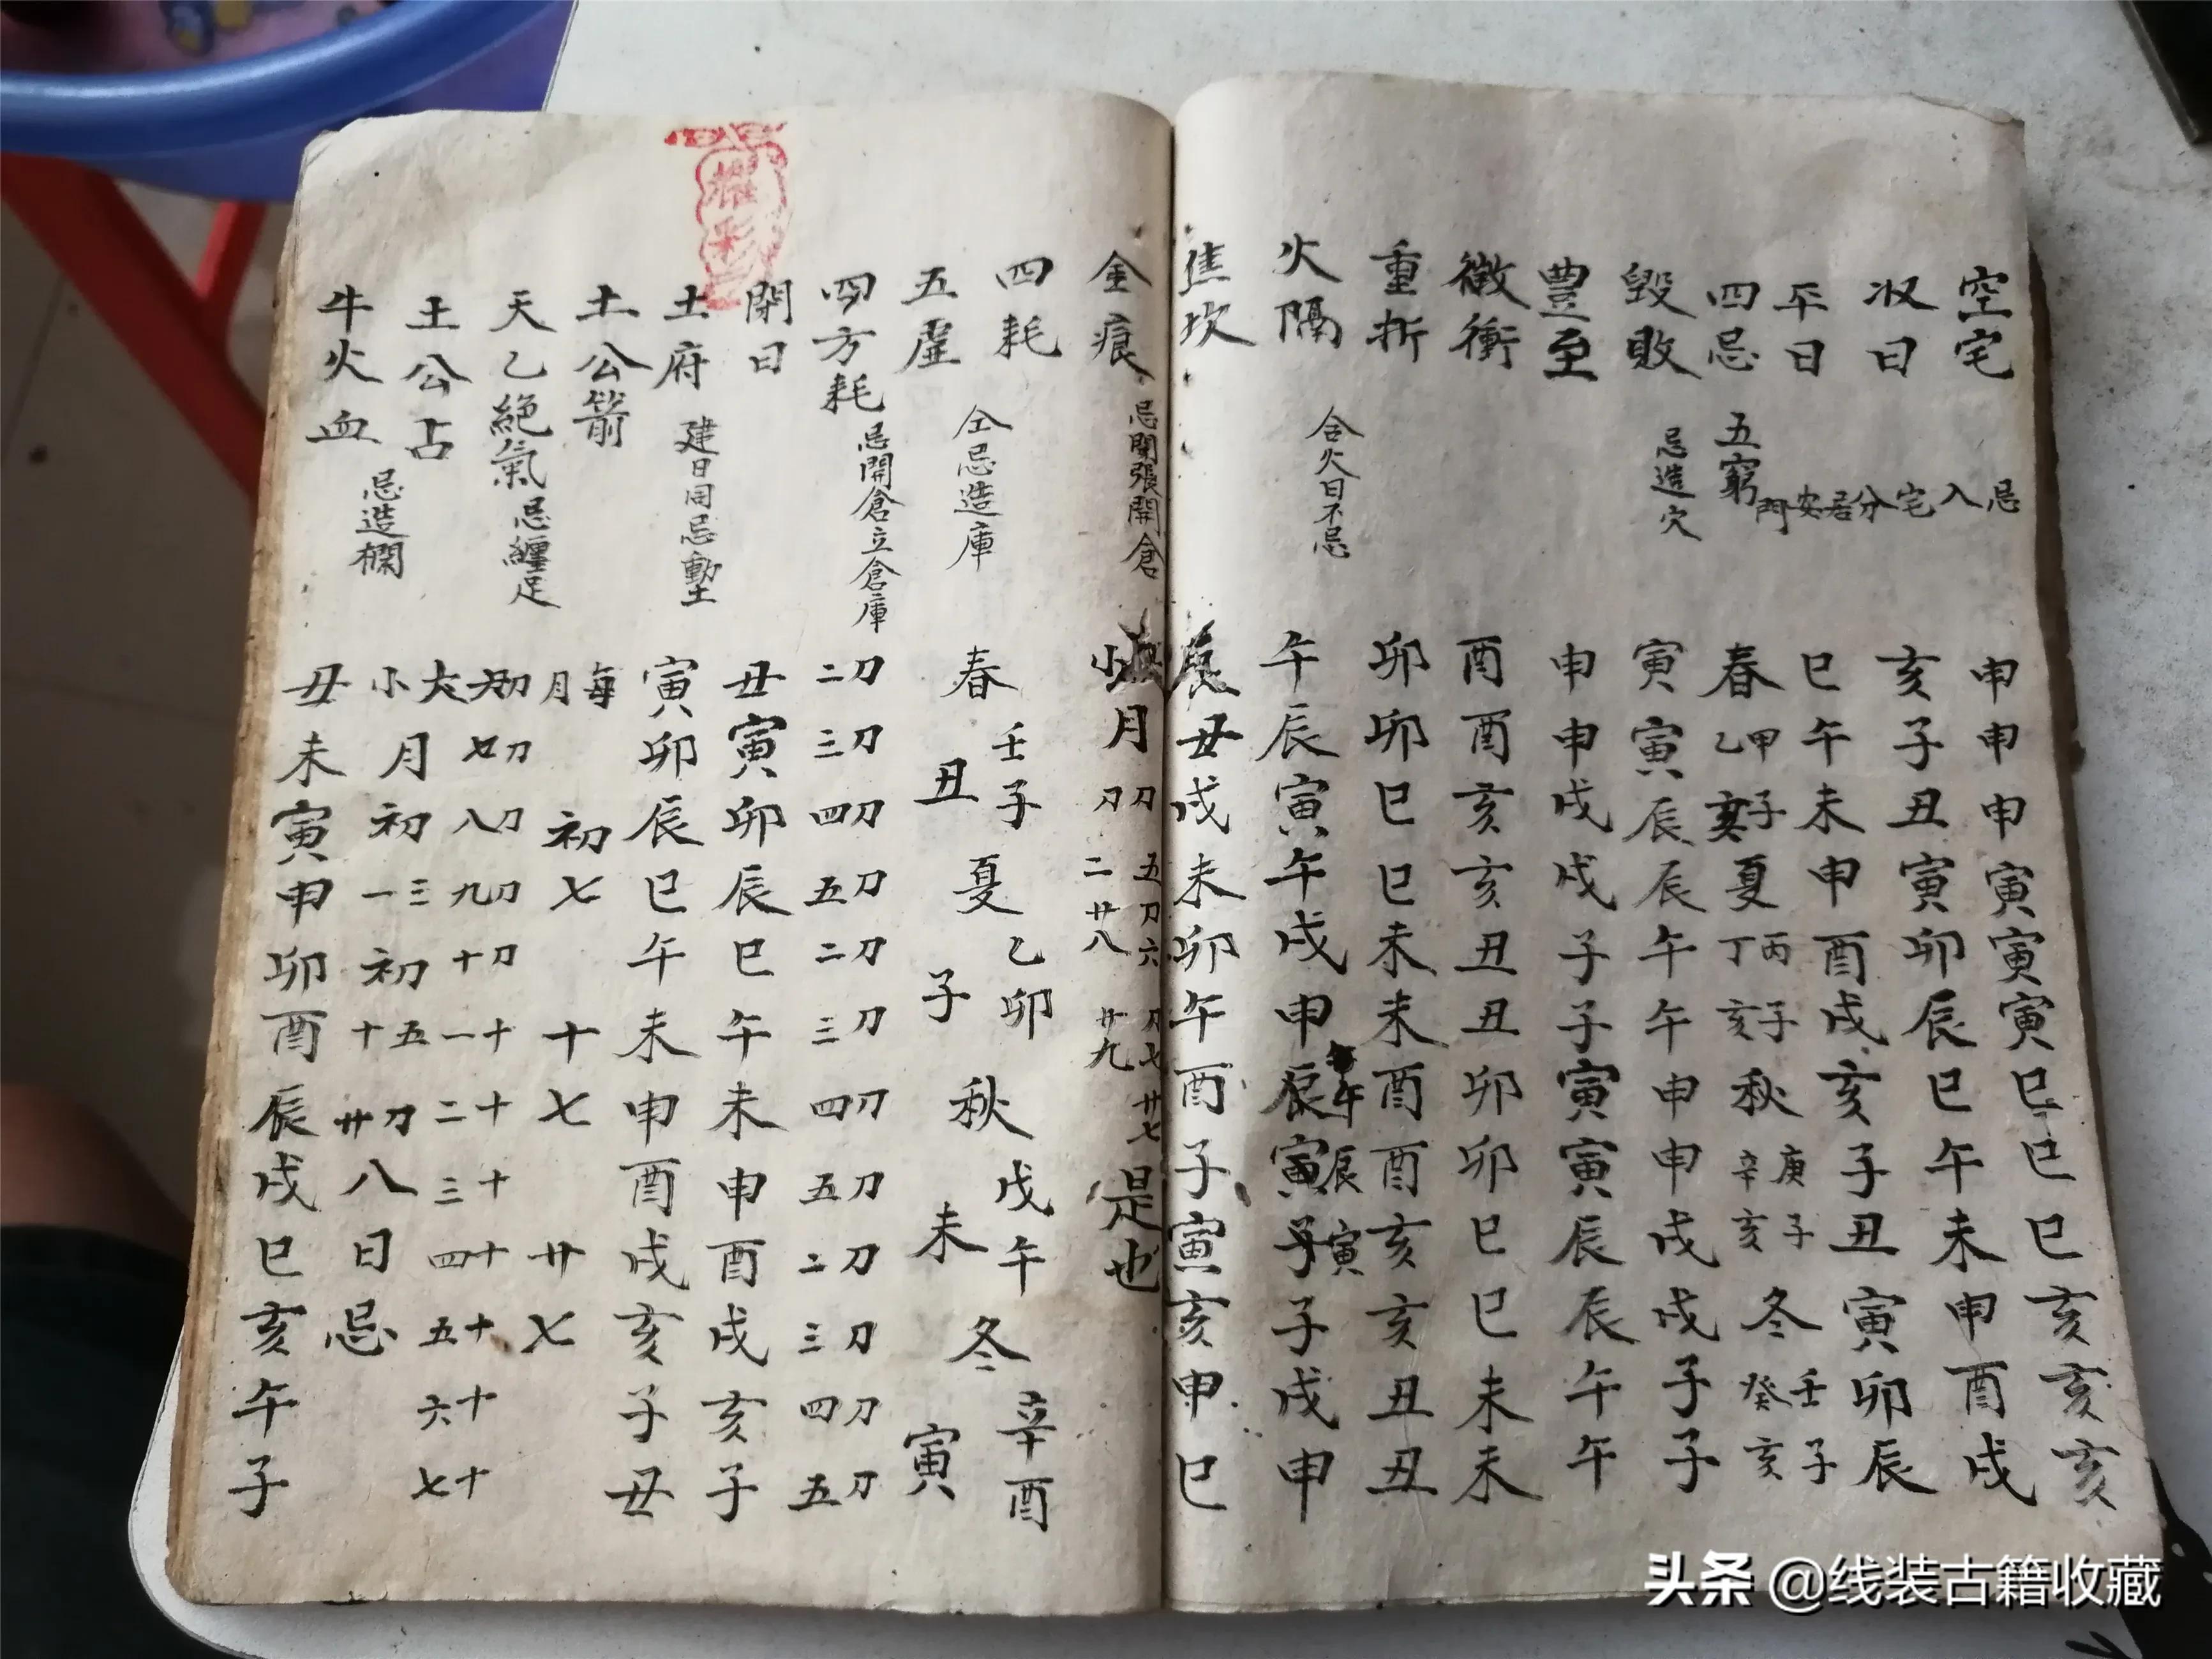 空宅 申申申寅寅寅巳巳巳亥亥亥
忌入宅分居安門
収日 亥子丑寅卯辰巳午未申酉戌
平日 巳午未申酉戌亥子丑寅卯辰
四忌 五窮 春 甲乙 子亥 夏 丙丁 子亥 秋 庚辛 子亥 冬 壬癸 子亥
毁敗 忌造穴 寅寅辰辰午午申申戌戌子子
豊至 申申戌戌子子寅寅辰辰午午
徵衝 酉酉亥亥丑丑卯卯巳巳未未
重折 卯卯巳巳未未酉酉亥亥丑丑
火隔 合火日不忌 午辰寅午戌申辰寅子戌申
午辰寅
焦坎 辰丑戌未卯午酉子寅亥申巳
金痕 忌開張開倉 小月 是也
四耗 春 壬子 夏 乙卯 秋 戊午 冬 辛酉
仝忌造庫
五虛 丑 子 未 寅
四方耗 忌開倉立倉庫 初二 初三 初四 初五 初二 初三 初四 初五 初二 初三 初四 初五
閉日 丑寅卯辰巳午未申酉戌亥子
土府 建日同忌動土 寅卯辰巳午未申酉戌亥子丑
土公箭 每月初七十七廿七
天乙絕氣 忌纏足 初六 初七 初八 初九 初十 十一 十二 十三 十四 十五 十六 十七
土公占 大小月初三一初五十初廿八日忌
牛火血 忌造欄 丑未寅申卯酉辰戌巳亥午子
耀彩
头条 @线装古籍收藏